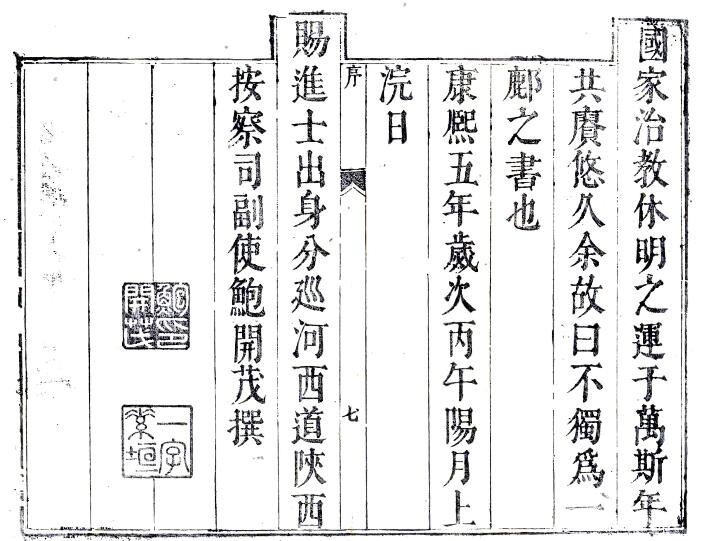 國家治教休明之運于萬斯年
共賡悠久余故曰不獨爲一
鄜之書也
康熙五年歲次丙午陽月上
浣日
序
七
賜進士出身分巡河西道陝西
按察司副使鮑開茂撰
鮑開茂印
一字素垣